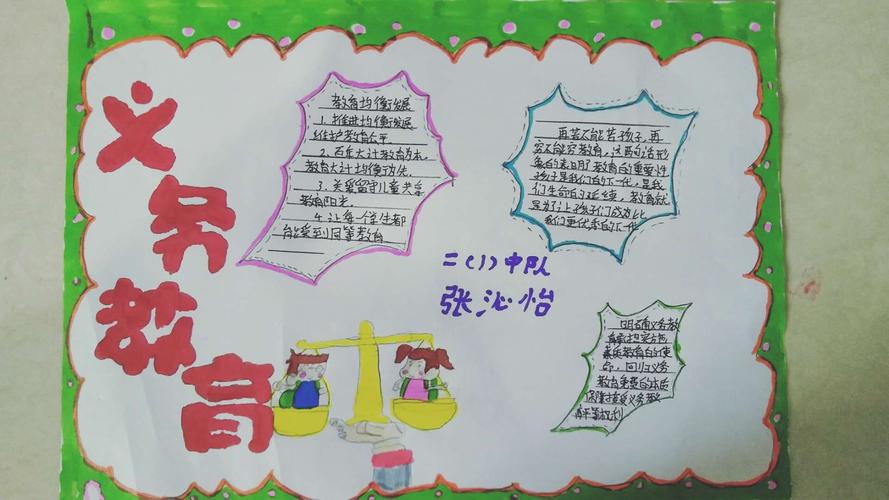 义务教育
教育均衡发展
1. 推进均衡发展,
维护教育公平
2. 百年大计教育为本,
教育大计均衡为先.
3. 关爱留守儿童共享
教育阳光.
4. 让每个学生都
能受到同等教育
再苦不能苦孩子,再
穷不能穷教育,这两句话形
象的表明了教育的重要性
孩子是我们的下一代,是我
们生命的延续,教育就
是为了让孩子们成为比
我们更优秀的下一代
二(1)中队
张沁怡
明确义务教
育承担实施
素质教育的使
命,回归义务
教育免费的本质
保障接受义务教
育平等权利